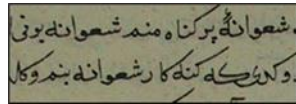 شعوانهٔ پر كناه منم شعوانه یونی
كه كنه كار شعوانه بنم وكل